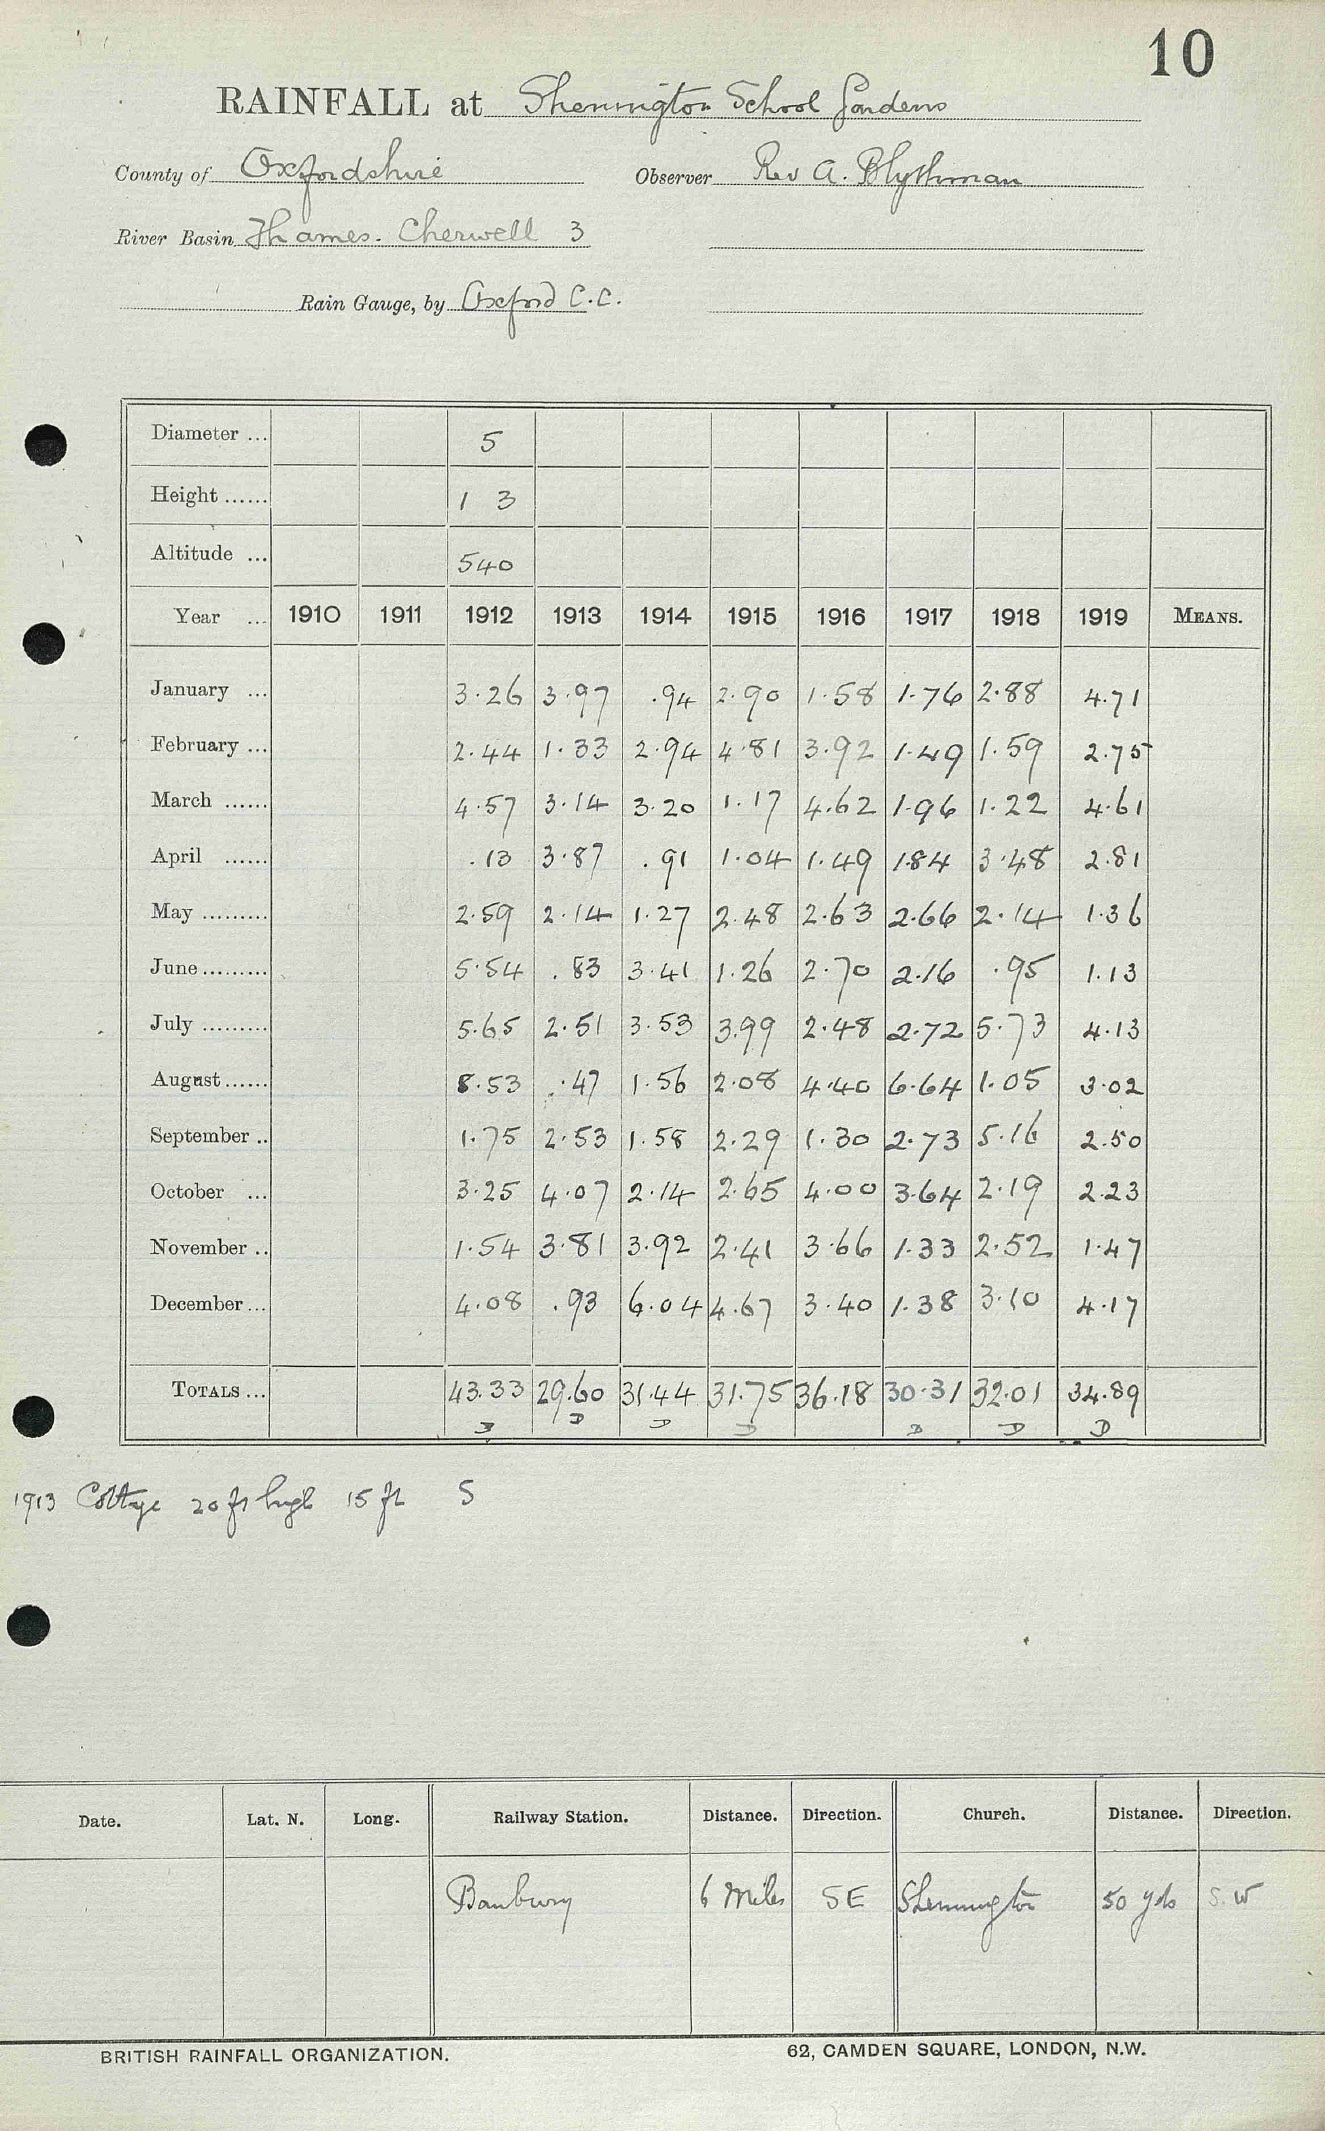 10
RAINFALL at Shennington School Gardens
County of Oxfordshire Observer Rev A. Blythman
River Basin Thames. Cherwell 3
Rain Gauge, by Oxford C.C.
Diameter ... 5
Height ...... 1 3
Altitude ... 540
Year ... 1910 1911 1912 1913 1914 1915 1916 1917 1918 1919 MEANS.
January ... 3.26 3.97 .94 2.90 1.58 1.76 2.88 4.71
February ... 2.44 1.33 2.94 4.81 3.92 1.49 1.59 2.75
March ...... 4.57 3.14 3.20 1.17 4.62 1.96 1.22 4.61
April ...... .13 3.87 .91 1.04 1.49 1.84 3.48 2.81
May ......... 2.59 2.14 1.27 2.48 2.63 2.66 2.14 1.36
June ......... 5.54 .83 3.41 1.26 2.70 2.16 .95 1.13
July ......... 5.65 2.51 3.53 3.99 2.48 2.72 5.73 4.13
August ...... 8.53 .47 1.56 2.08 4.40 6.64 1.05 3.02
September .. 1.75 2.53 1.58 2.29 1.30 2.73 5.16 2.50
October ... 3.25 4.07 2.14 2.65 4.00 3.64 2.19 2.23
November .. 1.54 3.81 3.92 2.41 3.66 1.33 2.52 1.47
December ... 4.08 .93 6.04 4.67 3.40 1.38 3.10 4.17
TOTALS ... 43.33 29.60 31.44 31.75 36.18 30.31 32.01 34.89
D D D D D D D
1913 Cottage 20 ft high 15 ft S
Date. Lat. N. Long. Railway Station. Distance. Direction. Church. Distance. Direction.
Banbury 6 Miles SE Shennington 50 yds S.W
BRITISH RAINFALL ORGANIZATION. 62, CAMDEN SQUARE, LONDON, N.W.